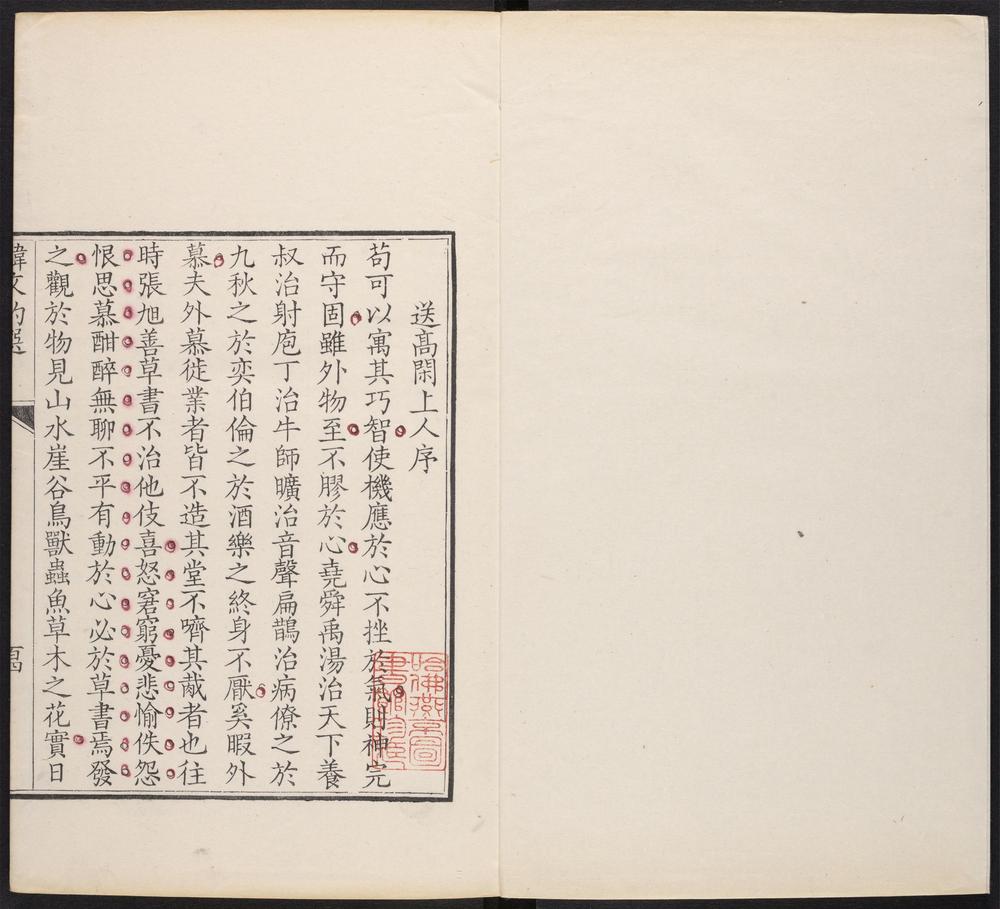 送高閑上人序
苟可以寓其巧智使機應於心不挫於氣則神完
而守固雖外物至不膠於心堯舜禹湯治天下養
叔治射庖丁治牛師曠治音聲扁鵲治病僚之於
九秋之於奕伯倫之於酒樂之終身不厭奚暇外
慕夫外慕徙業者皆不造其堂不嚌其胾者也往
時張旭善草書不治他伎喜怒窘窮憂悲愉佚怨
恨思慕酣醉無聊不平有動於心必於草書焉發
之觀於物見山水崖谷鳥獸蟲魚草木之花實日
韓文約選
哈佛燕京圖
書館